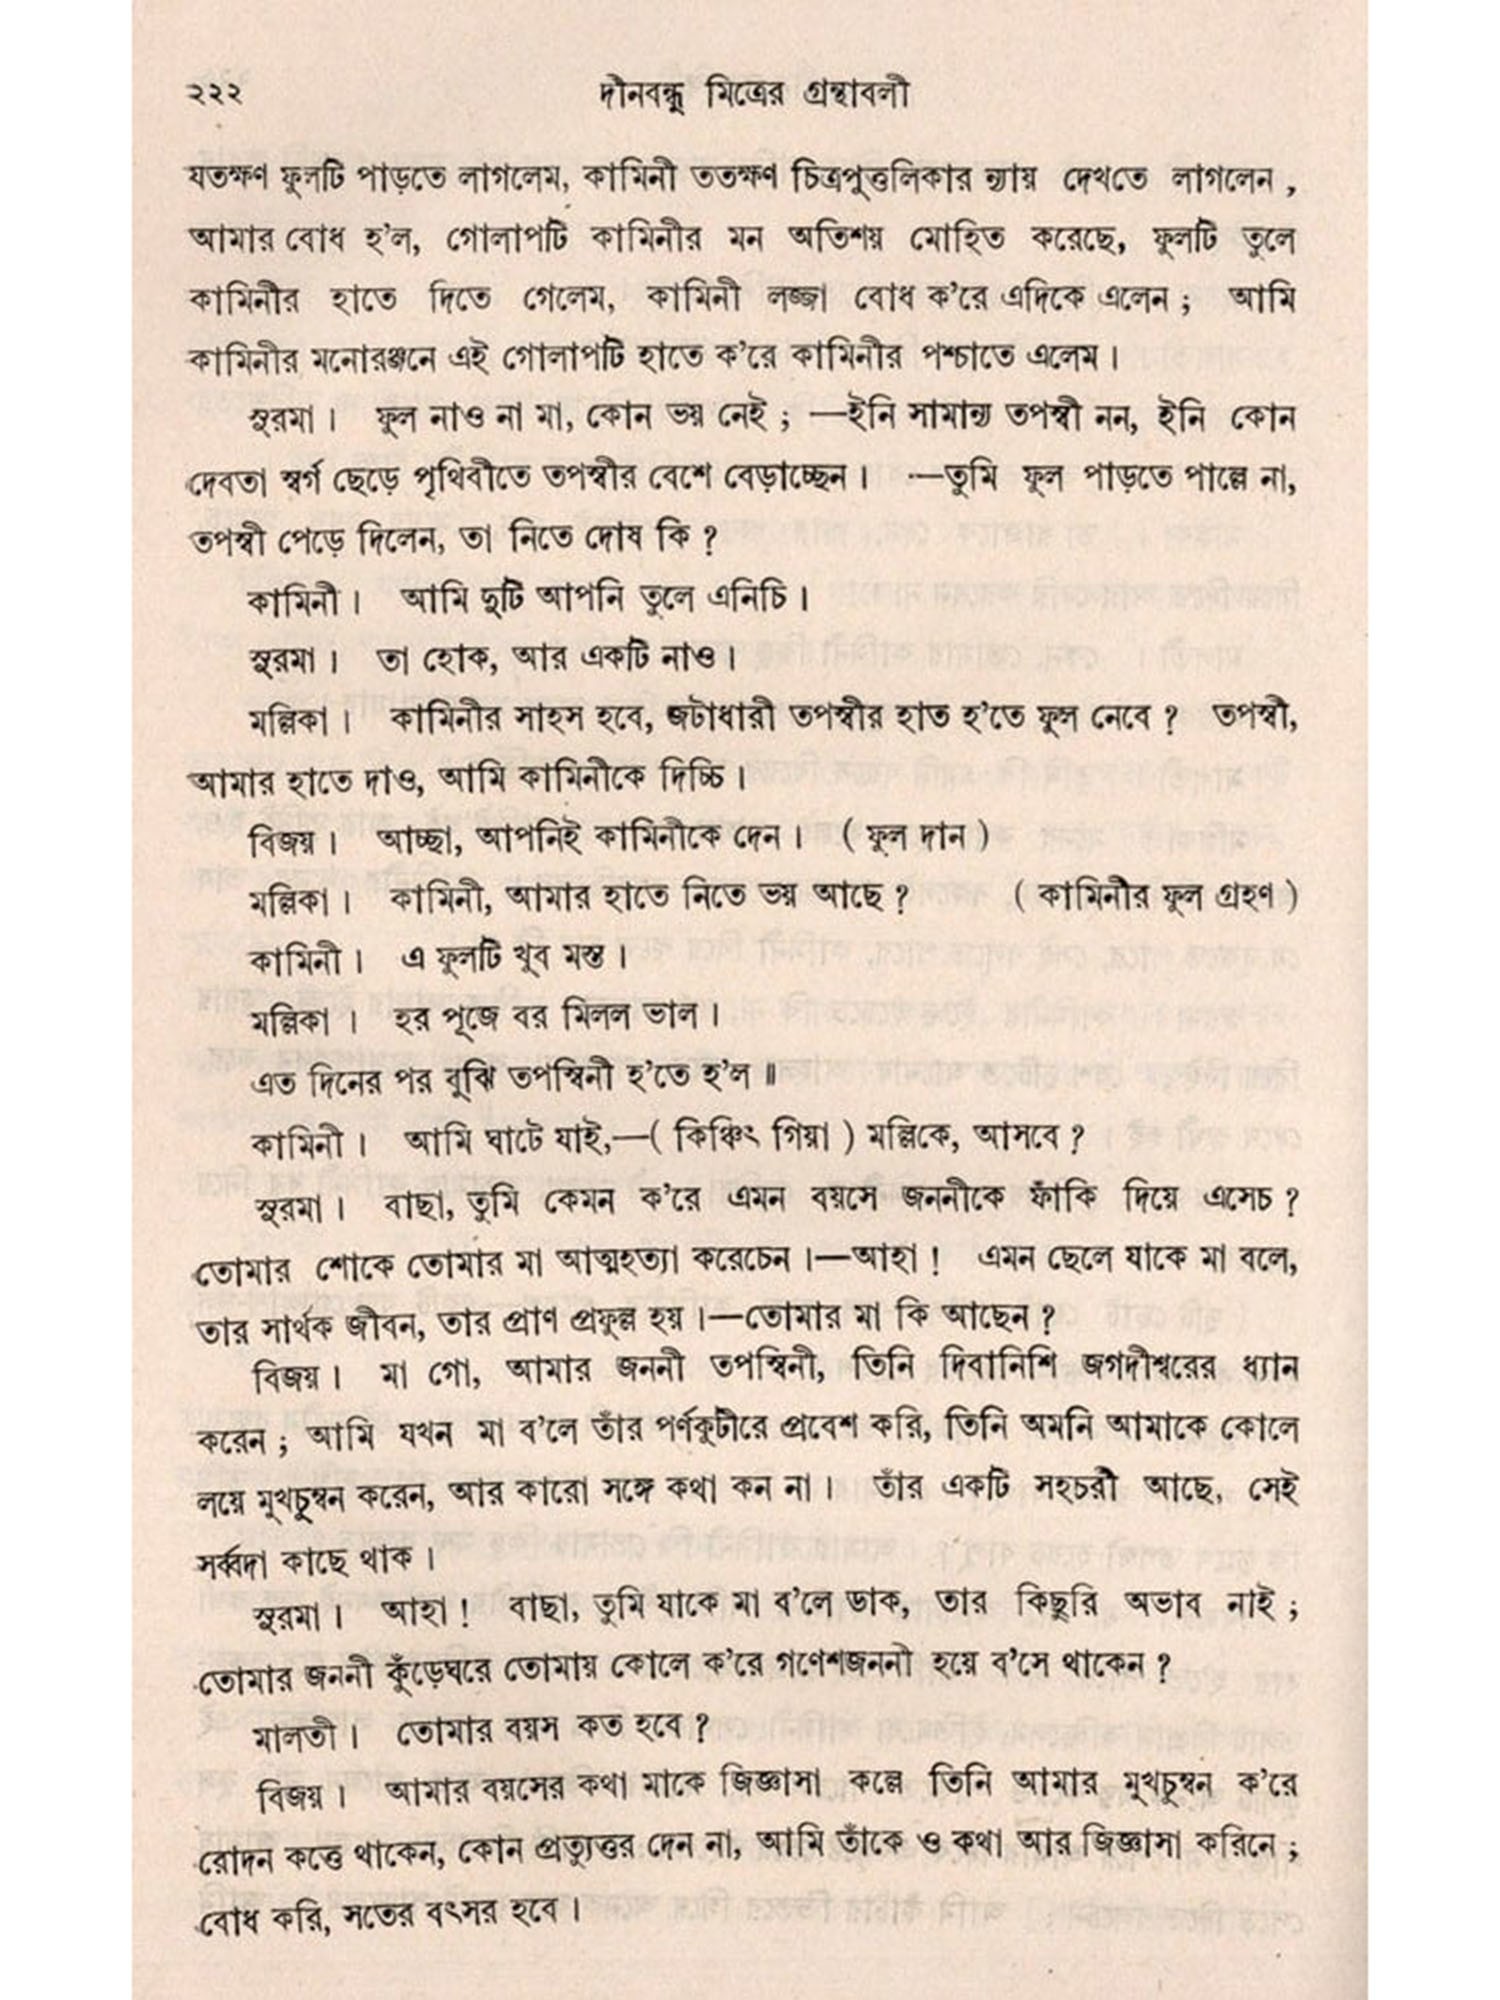 ২২২ দীনবন্ধু মিত্রের গ্রন্থাবলী
যতক্ষণ ফুলটি পাড়তে লাগলেম, কামিনী ততক্ষণ চিত্রপুত্তলিকার ন্যায় দেখতে লাগলেন,
আমার বোধ হ'ল, গোলাপটি কামিনীর মন অতিশয় মোহিত করেছে, ফুলটি তুলে
কামিনীর হাতে দিতে গেলেম, কামিনী লজ্জা বোধ ক'রে এদিকে এলেন; আমি
কামিনীর মনোরঞ্জনে এই গোলাপটি হাতে ক'রে কামিনীর পশ্চাতে এলেম।
সুরমা। ফুল নাও না মা, কোন ভয় নেই; —ইনি সামান্য তপস্বী নন, ইনি কোন
দেবতা স্বর্গ ছেড়ে পৃথিবীতে তপস্বীর বেশে বেড়াচ্ছেন। —তুমি ফুল পাড়তে পাল্লে না,
তপস্বী পেড়ে দিলেন, তা নিতে দোষ কি?
কামিনী। আমি দুটি আপনি তুলে এনিচি।
সুরমা। তা হোক, আর একটি নাও।
মল্লিকা। কামিনীর সাহস হবে, জটাধারী তপস্বীর হাত হ'তে ফুল নেবে? তপস্বী,
আমার হাতে দাও, আমি কামিনীকে দিচ্চি।
বিজয়। আচ্ছা, আপনিই কামিনীকে দেন। (ফুল দান)
মল্লিকা। কামিনী, আমার হাতে নিতে ভয় আছে? (কামিনীর ফুল গ্রহণ)
কামিনী। এ ফুলটি খুব মস্ত।
মল্লিকা। হর পূজে বর মিলল ভাল।
এত দিনের পর বুঝি তপস্বিনী হ'তে হ'ল॥
কামিনী। আমি ঘাটে যাই,—(কিঞ্চিৎ গিয়া) মল্লিকে, আসবে?
সুরমা। বাছা, তুমি কেমন ক'রে এমন বয়সে জননীকে ফাঁকি দিয়ে এসেচ?
তোমার শোকে তোমার মা আত্মহত্যা করেচেন।—আহা! এমন ছেলে যাকে মা বলে,
তার সার্থক জীবন, তার প্রাণ প্রফুল্ল হয়।—তোমার মা কি আছেন?
বিজয়। মা গো, আমার জননী তপস্বিনী, তিনি দিবানিশি জগদীশ্বরের ধ্যান
করেন; আমি যখন মা ব'লে তাঁর পর্ণকুটীরে প্রবেশ করি, তিনি অমনি আমাকে কোলে
লয়ে মুখচুম্বন করেন, আর কারো সঙ্গে কথা কন না। তাঁর একটি সহচরী আছে, সেই
সর্ব্বদা কাছে থাক।
সুরমা। আহা! বাছা, তুমি যাকে মা ব'লে ডাক, তার কিছুরি অভাব নাই;
তোমার জননী কুঁড়েঘরে তোমায় কোলে ক'রে গণেশজননী হয়ে ব'সে থাকেন?
মালতী। তোমার বয়স কত হবে?
বিজয়। আমার বয়সের কথা মাকে জিজ্ঞাসা কল্লে তিনি আমার মুখচুম্বন ক'রে
রোদন কত্তে থাকেন, কোন প্রত্যুত্তর দেন না, আমি তাঁকে ও কথা আর জিজ্ঞাসা করিনে;
বোধ করি, সতের বৎসর হবে।